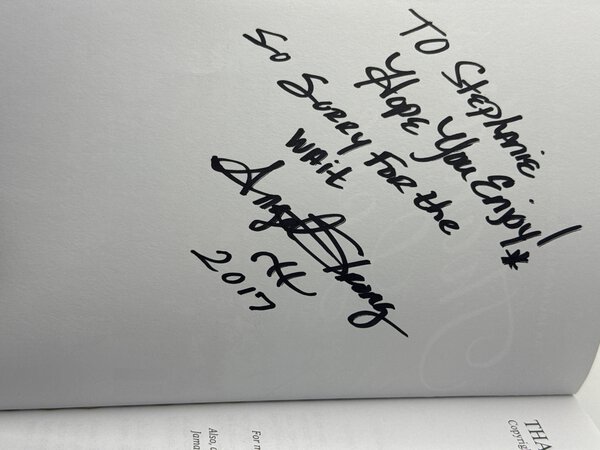 TO Stephanie
Hope You Enjoy!*
So Sorry For the
wait
Angel Strong
2017
THA
Copyrigh
For m
Also, c
Jama